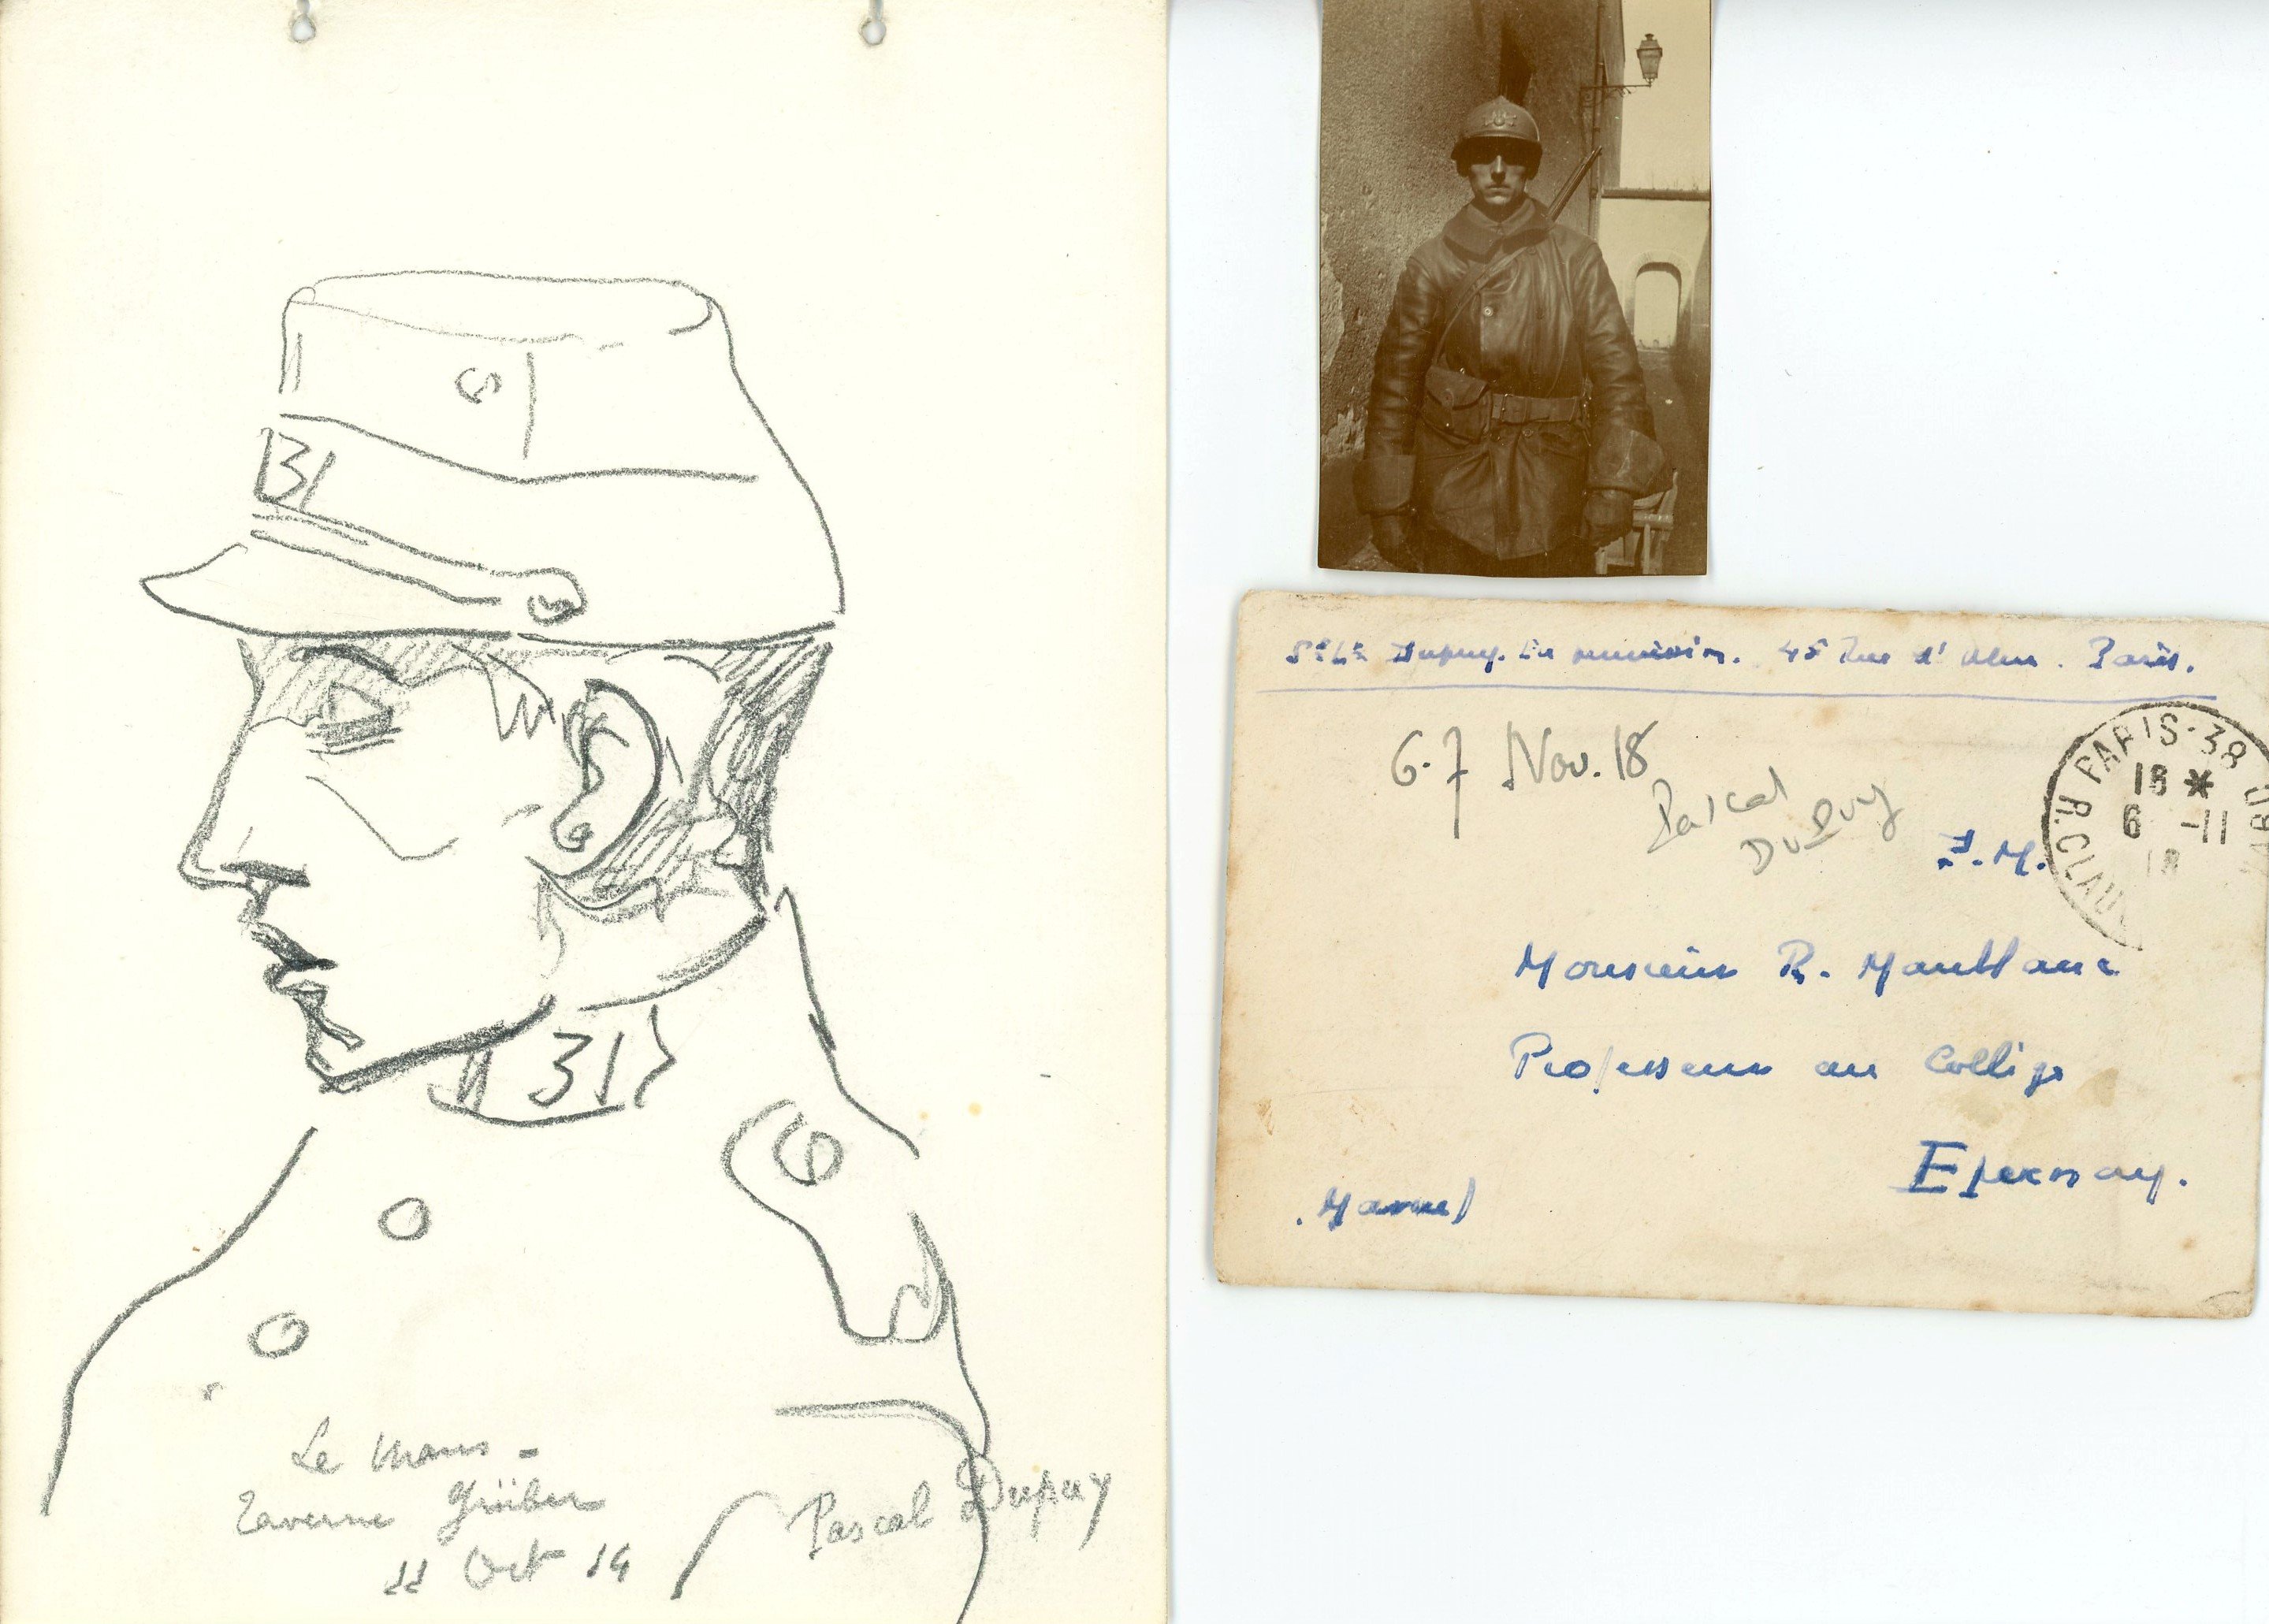 31
31
Le Mans -
Taverne Grüber
11 Oct 14
Pascal Dupuy
St Lt Dupuy. En permission. 45 Rue d'Ulm. Paris.
6.7 Nov. 18
Pascal
Dupuy
F.M.
PARIS·38
18 *
6 -11
18
R.CLAU
Monsieur R. Maublanc
Professeur au Collège
Epernay.
Marne)